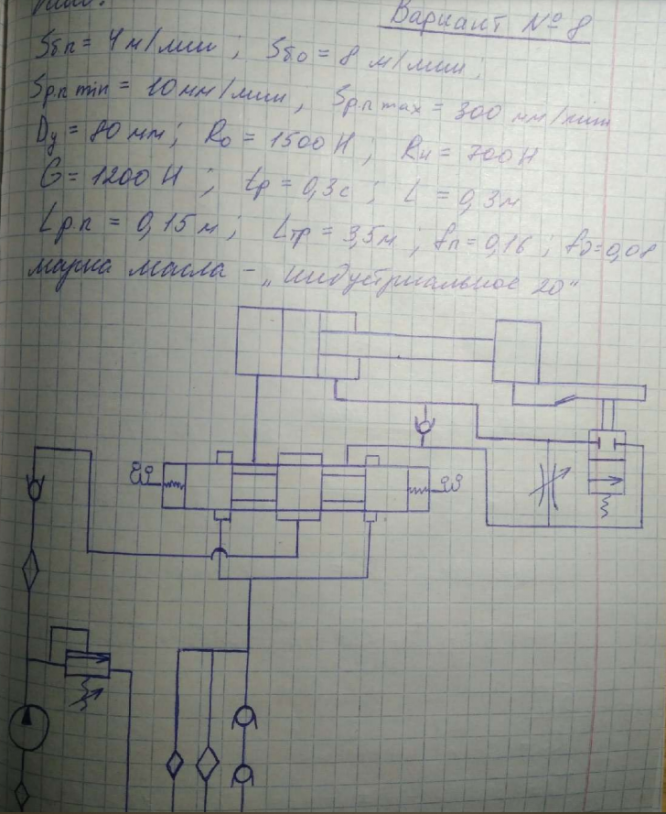 Вариант № 8
Sбп = 4 м/мин ; Sбо = 8 м/мин ;
Sр.п min = 10 мм/мин , Sр.п max = 300 мм/мин
Dу = 80 мм ; Rо = 1500 Н ; Rн = 700 Н
G = 1200 Н ; tр = 0,3 с ; L = 0,3 м
Lр.п = 0,15 м ; Lтр = 3,5 м ; fп = 0,16 ; fд = 0,08
марка масла - „Индустриальное 20"